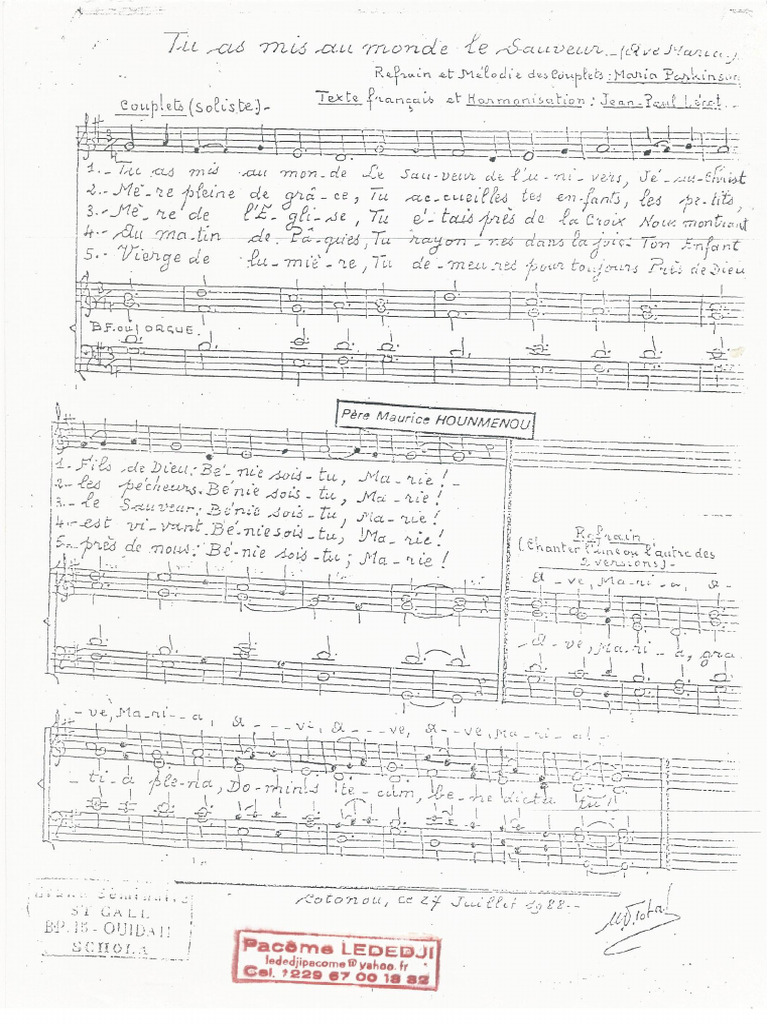 Tu as mis au monde le Sauveur_(Ave Maria)
Refrain et Mélodie des Couplets : Maria Parkinson
Couplets (soliste)_ Texte français et Harmonisation : Jean-Paul Lécot
1._ Tu as mis au mon-de Le Sau-veur de l'u-ni-vers, Jé-sus-Christ
2._ Mè-re pleine de grâ-ce, Tu ac-cueilles tes en-fants, les pe-tits,
3._ Mè-re de l'É-gli-se, Tu é-tais près de la Croix Nous montrant
4._ Au ma-tin de Pâ-ques, Tu rayon-nes dans la joie Ton Enfant
5._ Vierge de lu-miè-re, Tu de-meu-res pour toujours Près de Dieu
B.F. ou ORGUE.
Père Maurice HOUNMENOU
1_ Fils de Dieu: Bé-nie sois-tu, Ma-rie!_
2_ les pécheurs. Bénie sois-tu, Ma-rie!
3_ le Sauveur; Bénie sois-tu, Ma-rie!
4_ est vi-vant. Bé-nie sois-tu, Ma-rie!
5_ près de nous: Bé-nie sois-tu; Ma-rie!
Refrain
(Chanter l'une ou l'autre des
2 versions)_
A-ve, Ma-ri-a, A-
_A-ve, Ma-ri-a, gra
-ve, Ma-ri--a, A---ve, A--ve, A--ve, Ma-ri-a!-
_ti-a ple-na, Do-minus te-cum, be-ne dicta tu!
Cotonou, ce 27 Juillet 1988._
ST GALL
BP. 15 - OUIDAH
SCHOLA
Pacôme LEDEDJI
lededjipacome@yahoo.fr
Cel. 1229 67 00 18 32